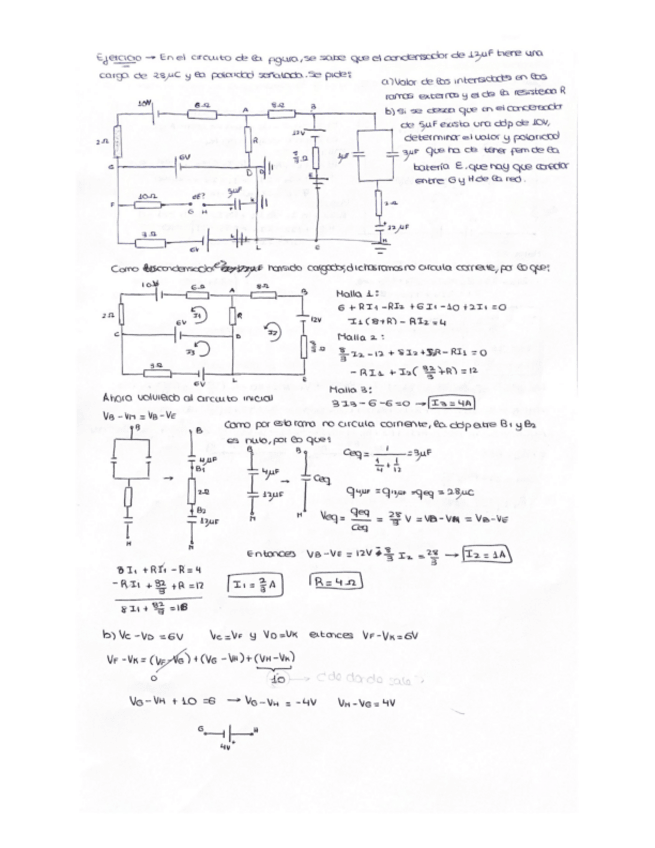 Ejercicio → En el circuito de la figura, se sabe que el condensador de 12μF tiene una
carga de 28μC y la polaridad señalada. Se pide:
a) Valor de las intensidades en las
ramas externas y el de la resistencia R
b) Si se desea que en el condensador
de 5μF exista una ddp de 10V,
determinar el valor y polaridad
que ha de tener fem de la
batería E, que hay que conectar
entre G y H de la red.
10V 6Ω A 8Ω B
2Ω R 12V
6V
C D
10Ω
F G H
3Ω
6V L E
2Ω
12μF
Como los condensadores han sido cargados, dichas ramas no circula corriente, por lo que:
10V 6Ω A 8Ω B
2Ω I1 R I2 12V
6V
C I3 D
3Ω
6V L E
Malla 1:
6 + RI1 - RI2 + 6I1 - 10 + 2I1 = 0
I1(8+R) - RI2 = 4
Malla 2:
8/3 I2 - 12 + 8I2 + RI2 - RI1 = 0
-RI1 + I2(32/3 + R) = 12
Malla 3:
3I3 - 6 - 6 = 0 → I3 = 4A
Ahora volviendo al circuito inicial
VB - VM = VB - VE
Como por esta rama no circula corriente, la ddp entre B1 y B2
es nula, por lo que:
B B B B
4μF
B1
2Ω
B2
12μF
4μF
12μF
Ceq
Ceq = 1 / (1/4 + 1/12) = 3μF
q4μF = q12μF = qeq = 28μC
Veq = qeq/Ceq = 28/3 V = VB - VM = VB - VE
Entonces VB - VE = 12V - 8/3 I2 = 28/3 → I2 = 1A
8I1 + RI1 - R = 4
-RI1 + 32/3 + R = 12
I1 = 2/3 A
R = 4Ω
b) VC - VD = 6V VC = VF y VD = VK entonces VF - VK = 6V
VF - VK = (VF - VG) + (VG - VH) + (VH - VK)
0 10 → ¿de donde sale?
VG - VH + 10 = 6 → VG - VH = -4V VH - VG = 4V
G H
4V